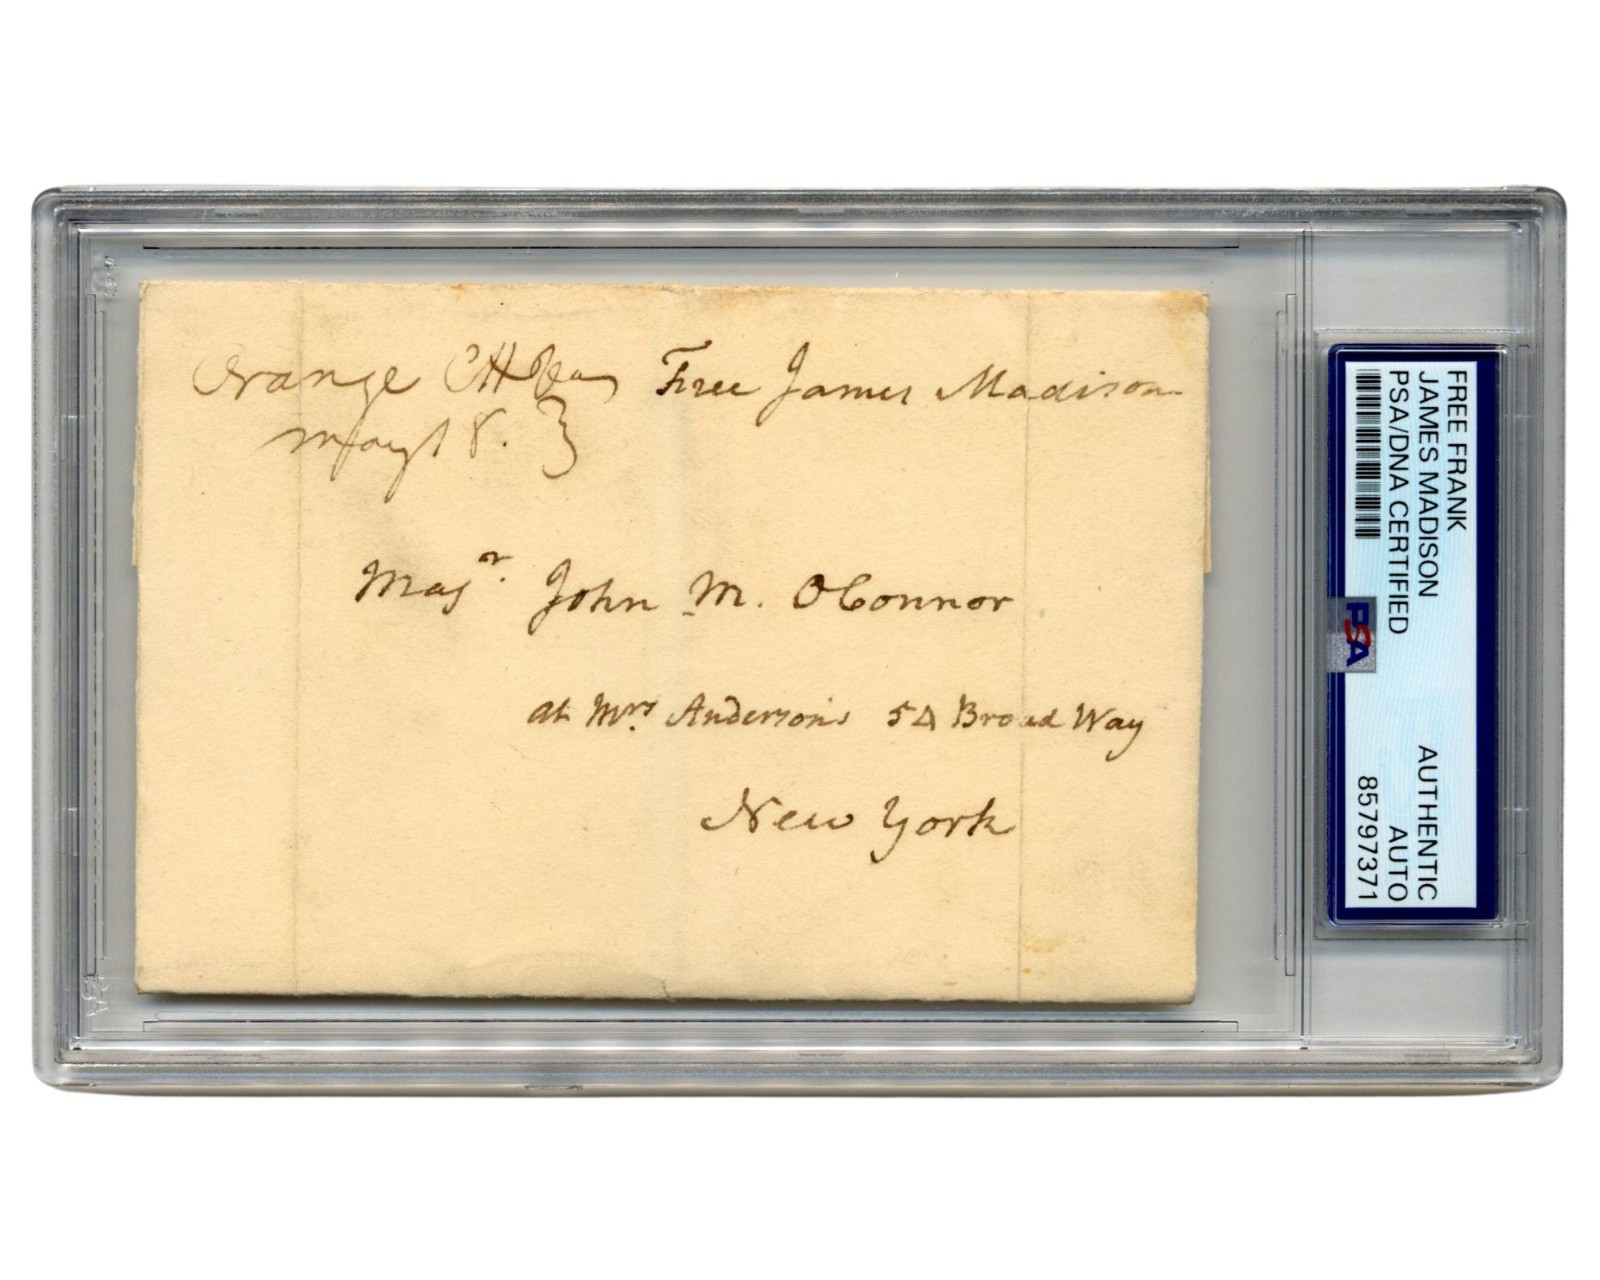 Orange CH Va Free James Madison
May 18.
Majr. John M. OConnor
at Mrs Anderson's 54 Broad Way
New York
FREE FRANK
JAMES MADISON
PSA/DNA CERTIFIED
AUTHENTIC
AUTO
85797371
PSA
PSA